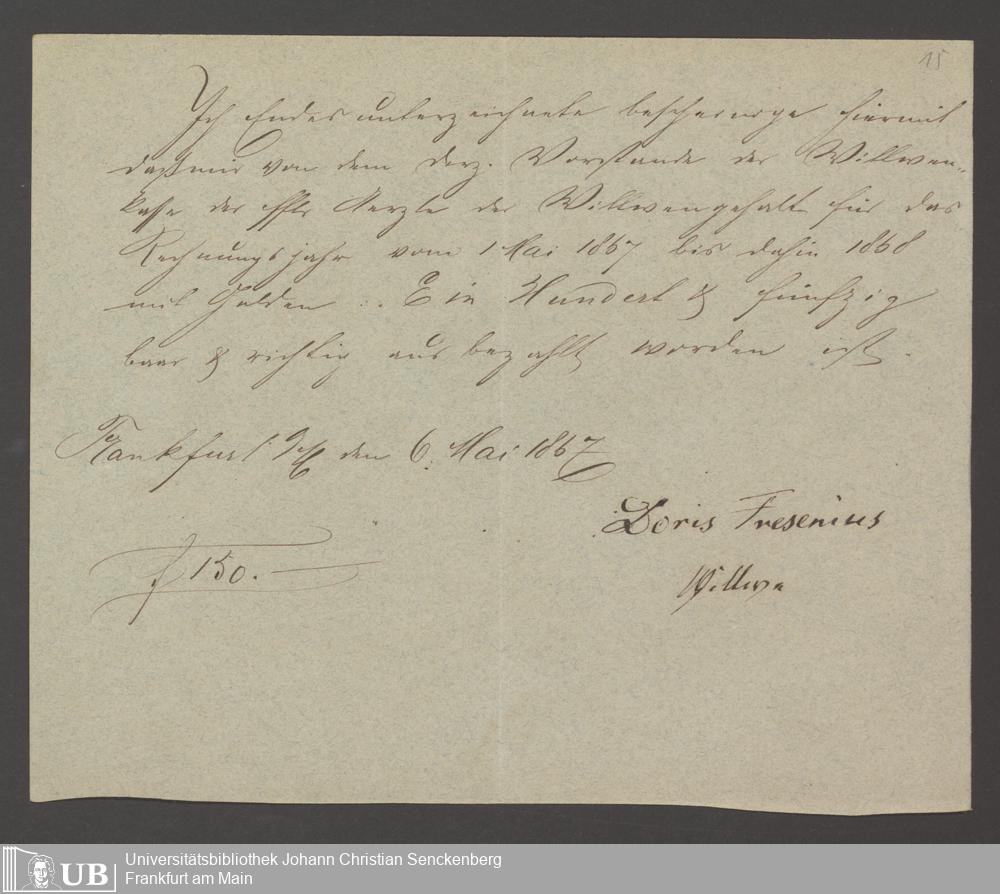 15
Ich Endesunterzeichnete bescheinige hiermit
daß mir von dem derz. Vorstande der Wittwen„
kasse der Aerzte der Wittwengehalt für das
Rechnungsjahr vom 1 Mai 1867 bis dahin 1868
mit Gulden Ein Hundert & fünfzig
baar & richtig ausbezahlt worden ist.
Frankfurt a/M den 6. Mai 1867
Doris Fresenius
Wittwe
f 150.—
UB
Universitätsbibliothek Johann Christian Senckenberg
Frankfurt am Main